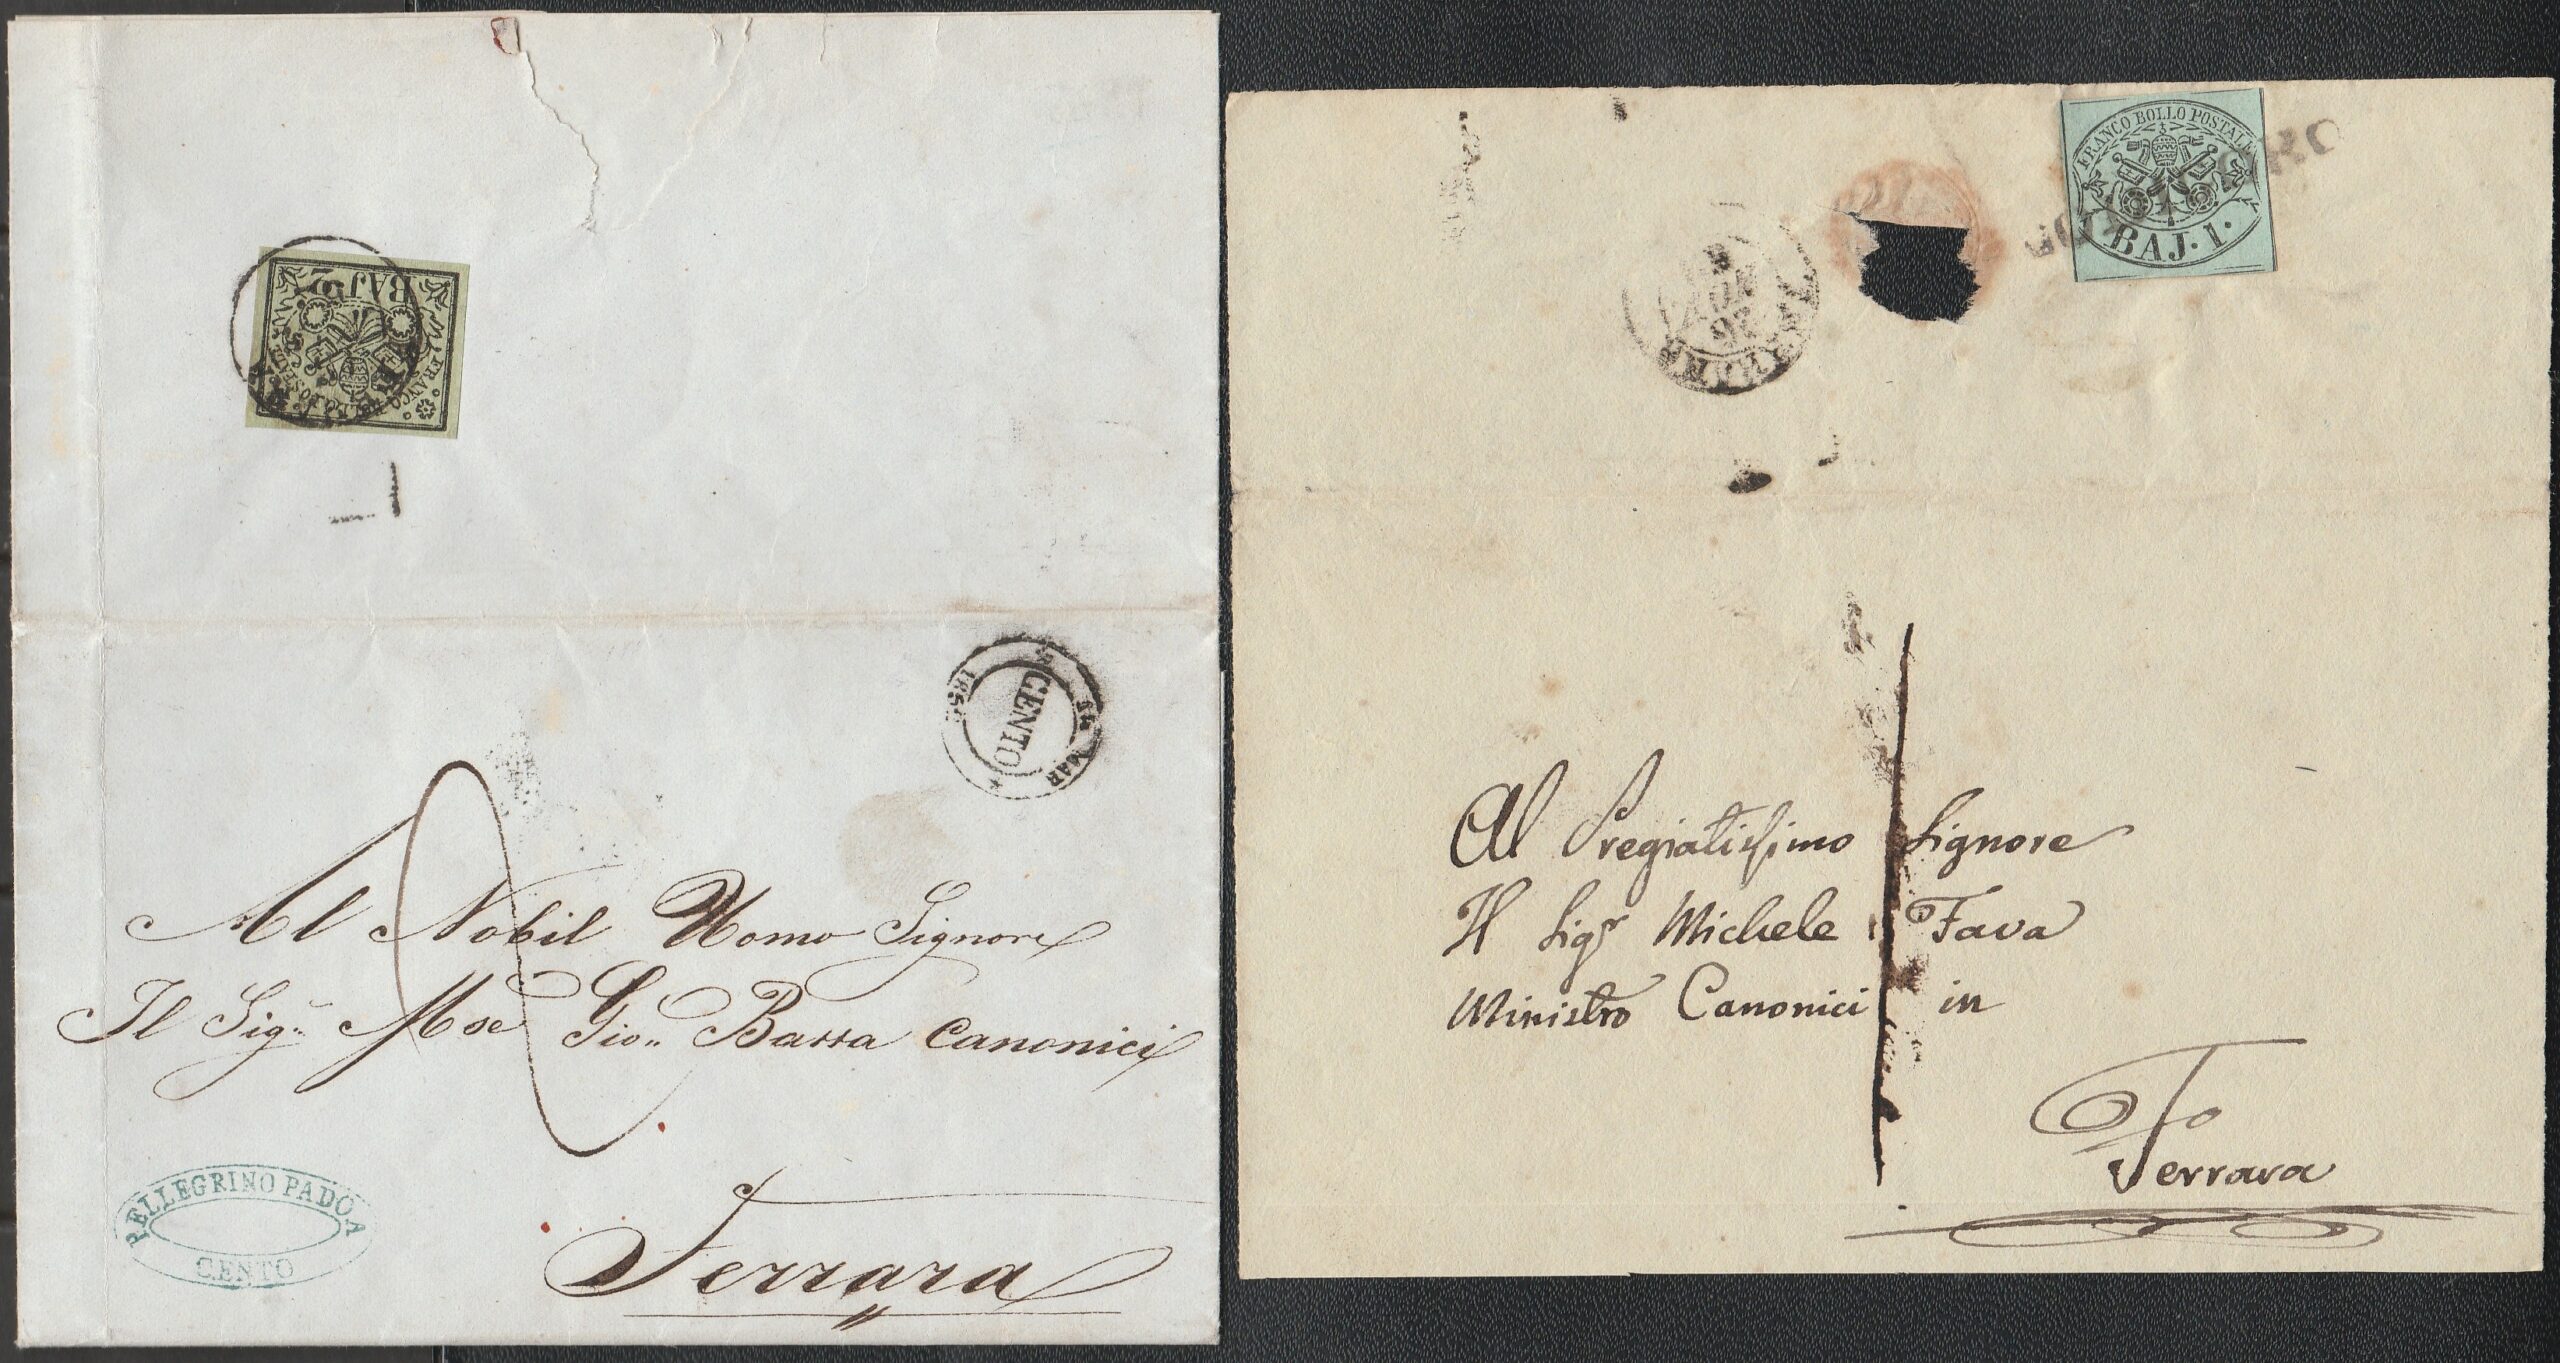 BAJ. 2
FRANCO BOLLO POSTALE
14 MAR
CENTO
Al Nobil Uomo Signore
Il Sig.r Mse Gio.. Batta Canonici
Ferrara
PELLEGRINO PADOA
CENTO
FRANCO BOLLO POSTALE
BAJ. 1.
Al Pregiatissimo Signore
Il Sigr Michele Fava
Ministro Canonici in
Ferrara